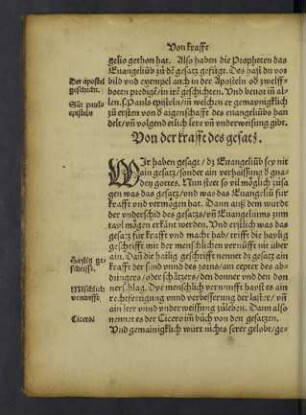 Von krafft
gelio gethon hat. Also haben die Propheten das
Euangeliũ zu dẽ gesatz gefügt. Des hast du vor
bild vnd exempel auch in der Aposteln od zwelff-
botten predigẽ/in irẽ geschichtẽ. Vnd beuor in al-
len.s.Pauls episteln/in welchen er gemaynigklich
zů ersten von d aigenschafft des euangeliũs han
delt/vñ volgend ettlich lere vñ vnderweissung gibt.
Der apostel
geschicht.
Sãt pauls
episteln
Von der krafft des gesatz.
WIr haben gesagt/dz Euangeliũ sey nit
ain gesatz/sonder ain verhaissũg d gna
den gottes. Nun ist not so vil möglich zůsa
gen was das gesatz/vnd was das Euangeliũ für
krafft vnd vermögen hat. Dann auß dem wurdt
der vnderschid des gesatz/vñ Euangeliums zum
tayl mögen erkãnt werden. Vnd erstlich was das
gesatz für krafft vnd macht hab/trifft die haylig
geschrifft mit der menschlichen vernũfft nit über
ain. Dañ die hailig geschrifft nennet dz gesatz ain
krafft der sünd vnnd des zorns/am cepter des ab
dringers/oder schätzers/den donner vnd den don
nerschlag. Dye menschlich vernunfft hayst es ain
rechtfertigung vnnd verbesserung der laster/vñ
ain leer vnnd vnderweissung zůleben. Dann also
nennet es der Cicero im bůch von den gesatzen.
Vnd gemainigklich würt nichts serer gelobt/ge-
Haylig ge-
schrifft.
Mẽschlich
vernunfft.
Cicero.